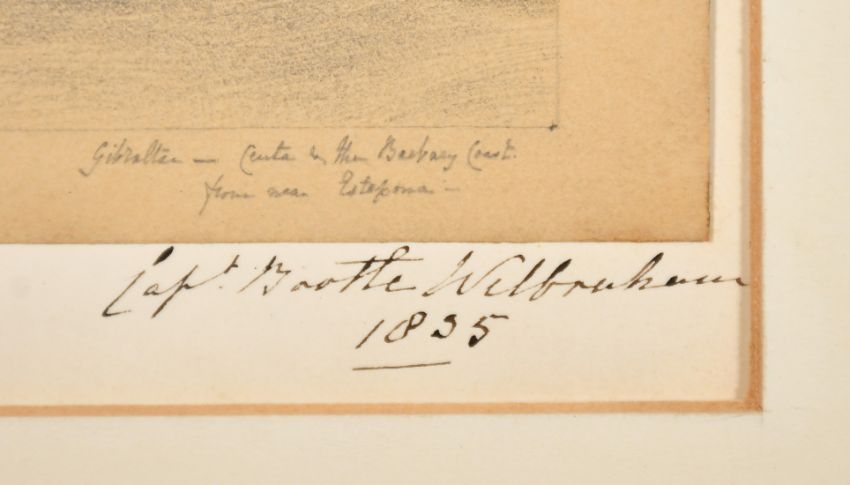 Gibraltar — Ceuta & the Barbary Coast.
from near Estepona —
Capt. Bootle Wilbraham
1835